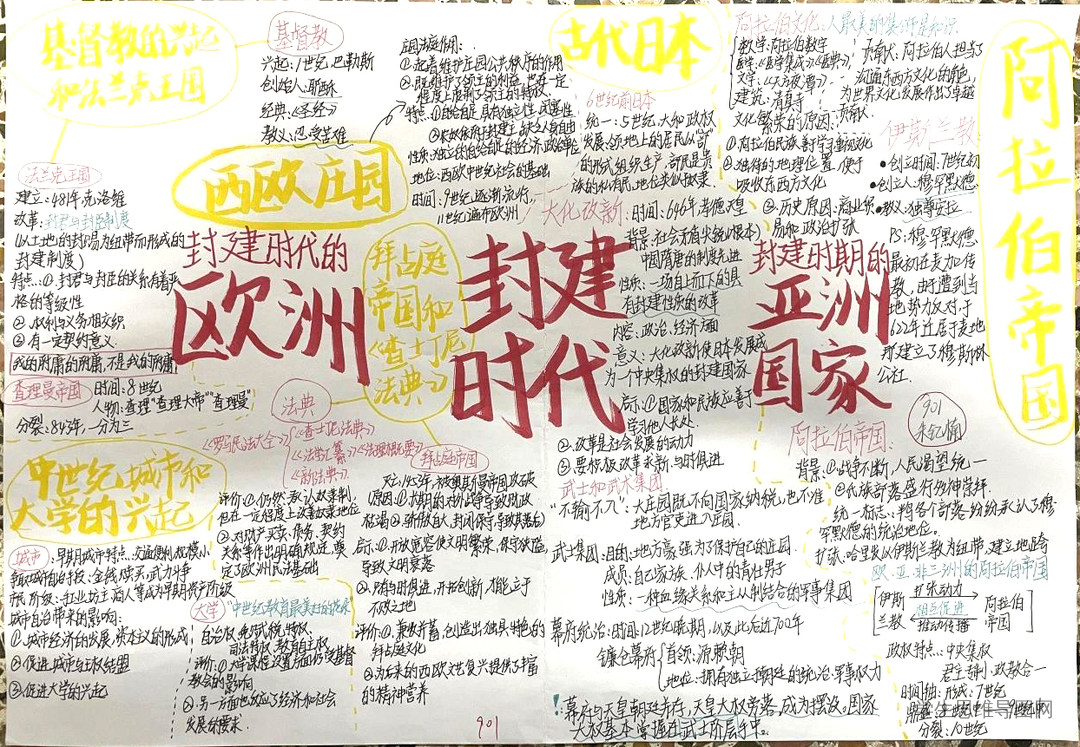 基督教的兴起
和法兰克王国
基督教
兴起:1世纪,巴勒斯
创始人:耶稣
经典:《圣经》
教义:忍受苦难
法兰克王国
建立:481年,克洛维
改革:封君与封臣制度
(以土地的封赐为纽带而形成的
封建制度)
特点:①封君与封臣的关系有着严
格的等级性
②权利与义务相交织
③有一定契约意义
我的附庸的附庸,不是我的附庸
查理曼帝国
时间:8世纪
人物:查理“查理大帝”“查理曼”
分裂:843年,一分为三
西欧庄园
庄园法庭作用:
①起着维护庄园公共秩序的作用
②既维护了领主的利益,也在一定
程度上限制了领主的特权
特点:①自给自足,具有独立性,闭塞性
性质:独立的自给自足的经济、政治单位
地位:西欧中世纪社会的基础
时间:9世纪逐渐流行,
11世纪遍布欧洲
封建时代的
欧洲
拜占庭
帝国和
《查士丁尼
法典》
法典
《罗马民法大全》
《查士丁尼法典》
《法学汇纂》《法理概要》
《新法典》
评价:①仍然承认奴隶制,
但在一定程度上改善奴隶地位
②对财产买卖、债务、契约
关系等作出明确规定,奠
定了欧洲民法基础
拜占庭帝国
灭亡:1453年,被奥斯曼帝国攻破
启示:①开放宽容使文明繁荣,保守狭隘,
导致文明衰落
②与时俱进,开拓创新,才能立于
不败之地
评价:①兼收并蓄,创造出独具特色的
拜占庭文化
②为后来的西欧文艺复兴提供了丰富
的精神营养
中世纪城市和
大学的兴起
城市
早期城市特点:交通便利,规模小
争取城市自治权:金钱赎买、武力斗争
市民阶级:手工业坊主、商人等成为早期资产阶级
城市自治带来的影响:
①城市经济的发展,资本主义的形成
②促进城市与王权结盟
③促进大学的兴起
大学
“中世纪教育最美好的花朵”
自治权:免赋税特权、
司法特权、教育自主权
评价:①大学课程设置方面仍受基督
教会的影响
②另一方面也反应了经济和社会
发展的需求
封建
时代
901
古代日本
6世纪前日本
统一:5世纪,大和政权
发展:领地上的居民以“部”
的形式组织生产,部民是贵
族的私有民,地位类似奴隶.
大化改新:
时间:646年,孝德天皇
背景:社会矛盾尖锐(根本)
中国隋唐的制度先进
性质:一场自上而下的具
有封建性质的改革
内容:政治、经济方面
意义:大化改新使日本发展成
为一个中央集权的封建国家
启示:①国家和民族应善于
学习他人长处.
②.改革是社会发展的动力
③.要积极改革求新,与时俱进
武士和武士集团
“不输不入”:大庄园既不向国家纳税,也不准
地方官吏进入庄园.
武士集团:目的:地方豪强为了保护自己的庄园.
成员:自己家族、仆从中的青壮男子
性质:一种血缘关系和主从制结合的军事集团
幕府统治:时间:12世纪晚期,以及此后近700年
镰仓幕府
首领:源赖朝
地位:拥有独立于朝廷的统治、军事权力
!幕府与天皇朝廷并存,天皇大权旁落,成为摆设.国家
大权基本掌握在武士阶层手中.
封建时期的
亚洲
国家
阿拉伯帝国
阿拉伯文化:人最美的装饰是知识.
数学:阿拉伯数字
医学:《医学集成》《医典》
文学:《天方夜谭》
建筑:清真寺
贡献大:阿拉伯人担当了
沟通东西方文化的角色,
为世界文化发展作出了卓越
贡献
文化繁荣的原因:
①阿拉伯民族善于学习吸收文化
②独特的地理位置,便于
吸收东西方文化
③历史原因:商业贸
易和政治扩张
伊斯兰教:
●创立时间:7世纪初
●创立人:穆罕默德
●教义:独尊安拉
PS:穆罕默德
最初在麦加传
教,由于遭到当
地势力反对于
622年迁居于麦地
那建立了穆斯林
公社.
901
阿拉伯帝国:
背景:①战争不断,人民渴望统一
②氏族部落盛行多神崇拜.
统一:标志:半岛各个部落纷纷承认了穆
罕默德的统治地位.
扩张:哈里发以伊斯兰教为纽带,建立地跨
欧、亚、非三洲的阿拉伯帝国
伊斯
兰教
扩张动力
相互促进
推动传播
阿拉伯
帝国
政权特点:中央集权
君主专制、政教合一
时间轴:形成:7世纪
分裂:10世纪